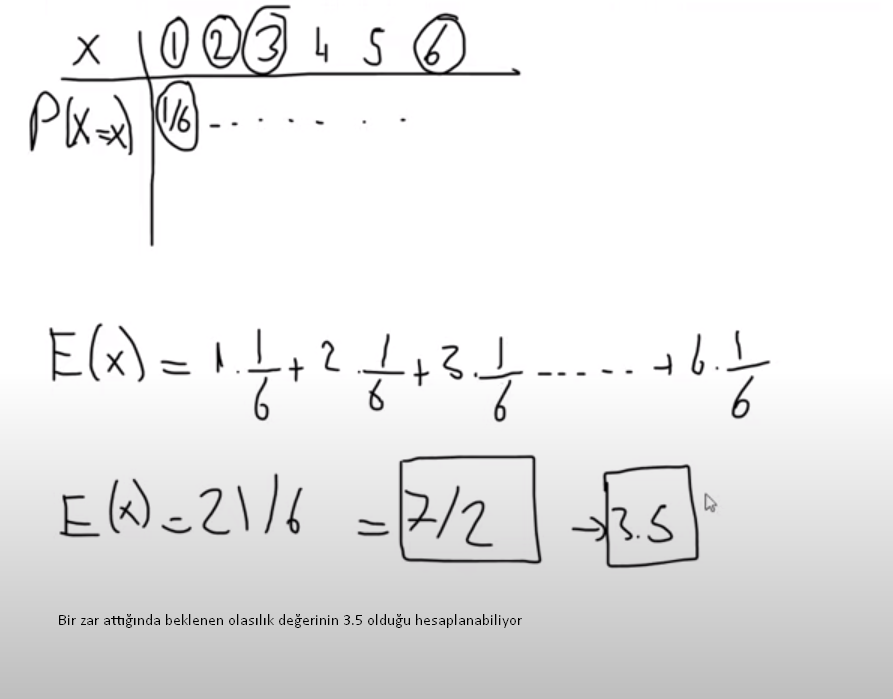 x 1 2 3 4 5 6
P(X=x) 1/6 - - . . - . .
E(x) = 1.1/6 + 2.1/6 + 3.1/6 ------ + 6.1/6
E(x) = 21/6 = 7/2 → 3.5
Bir zar attığında beklenen olasılık değerinin 3.5 olduğu hesaplanabiliyor